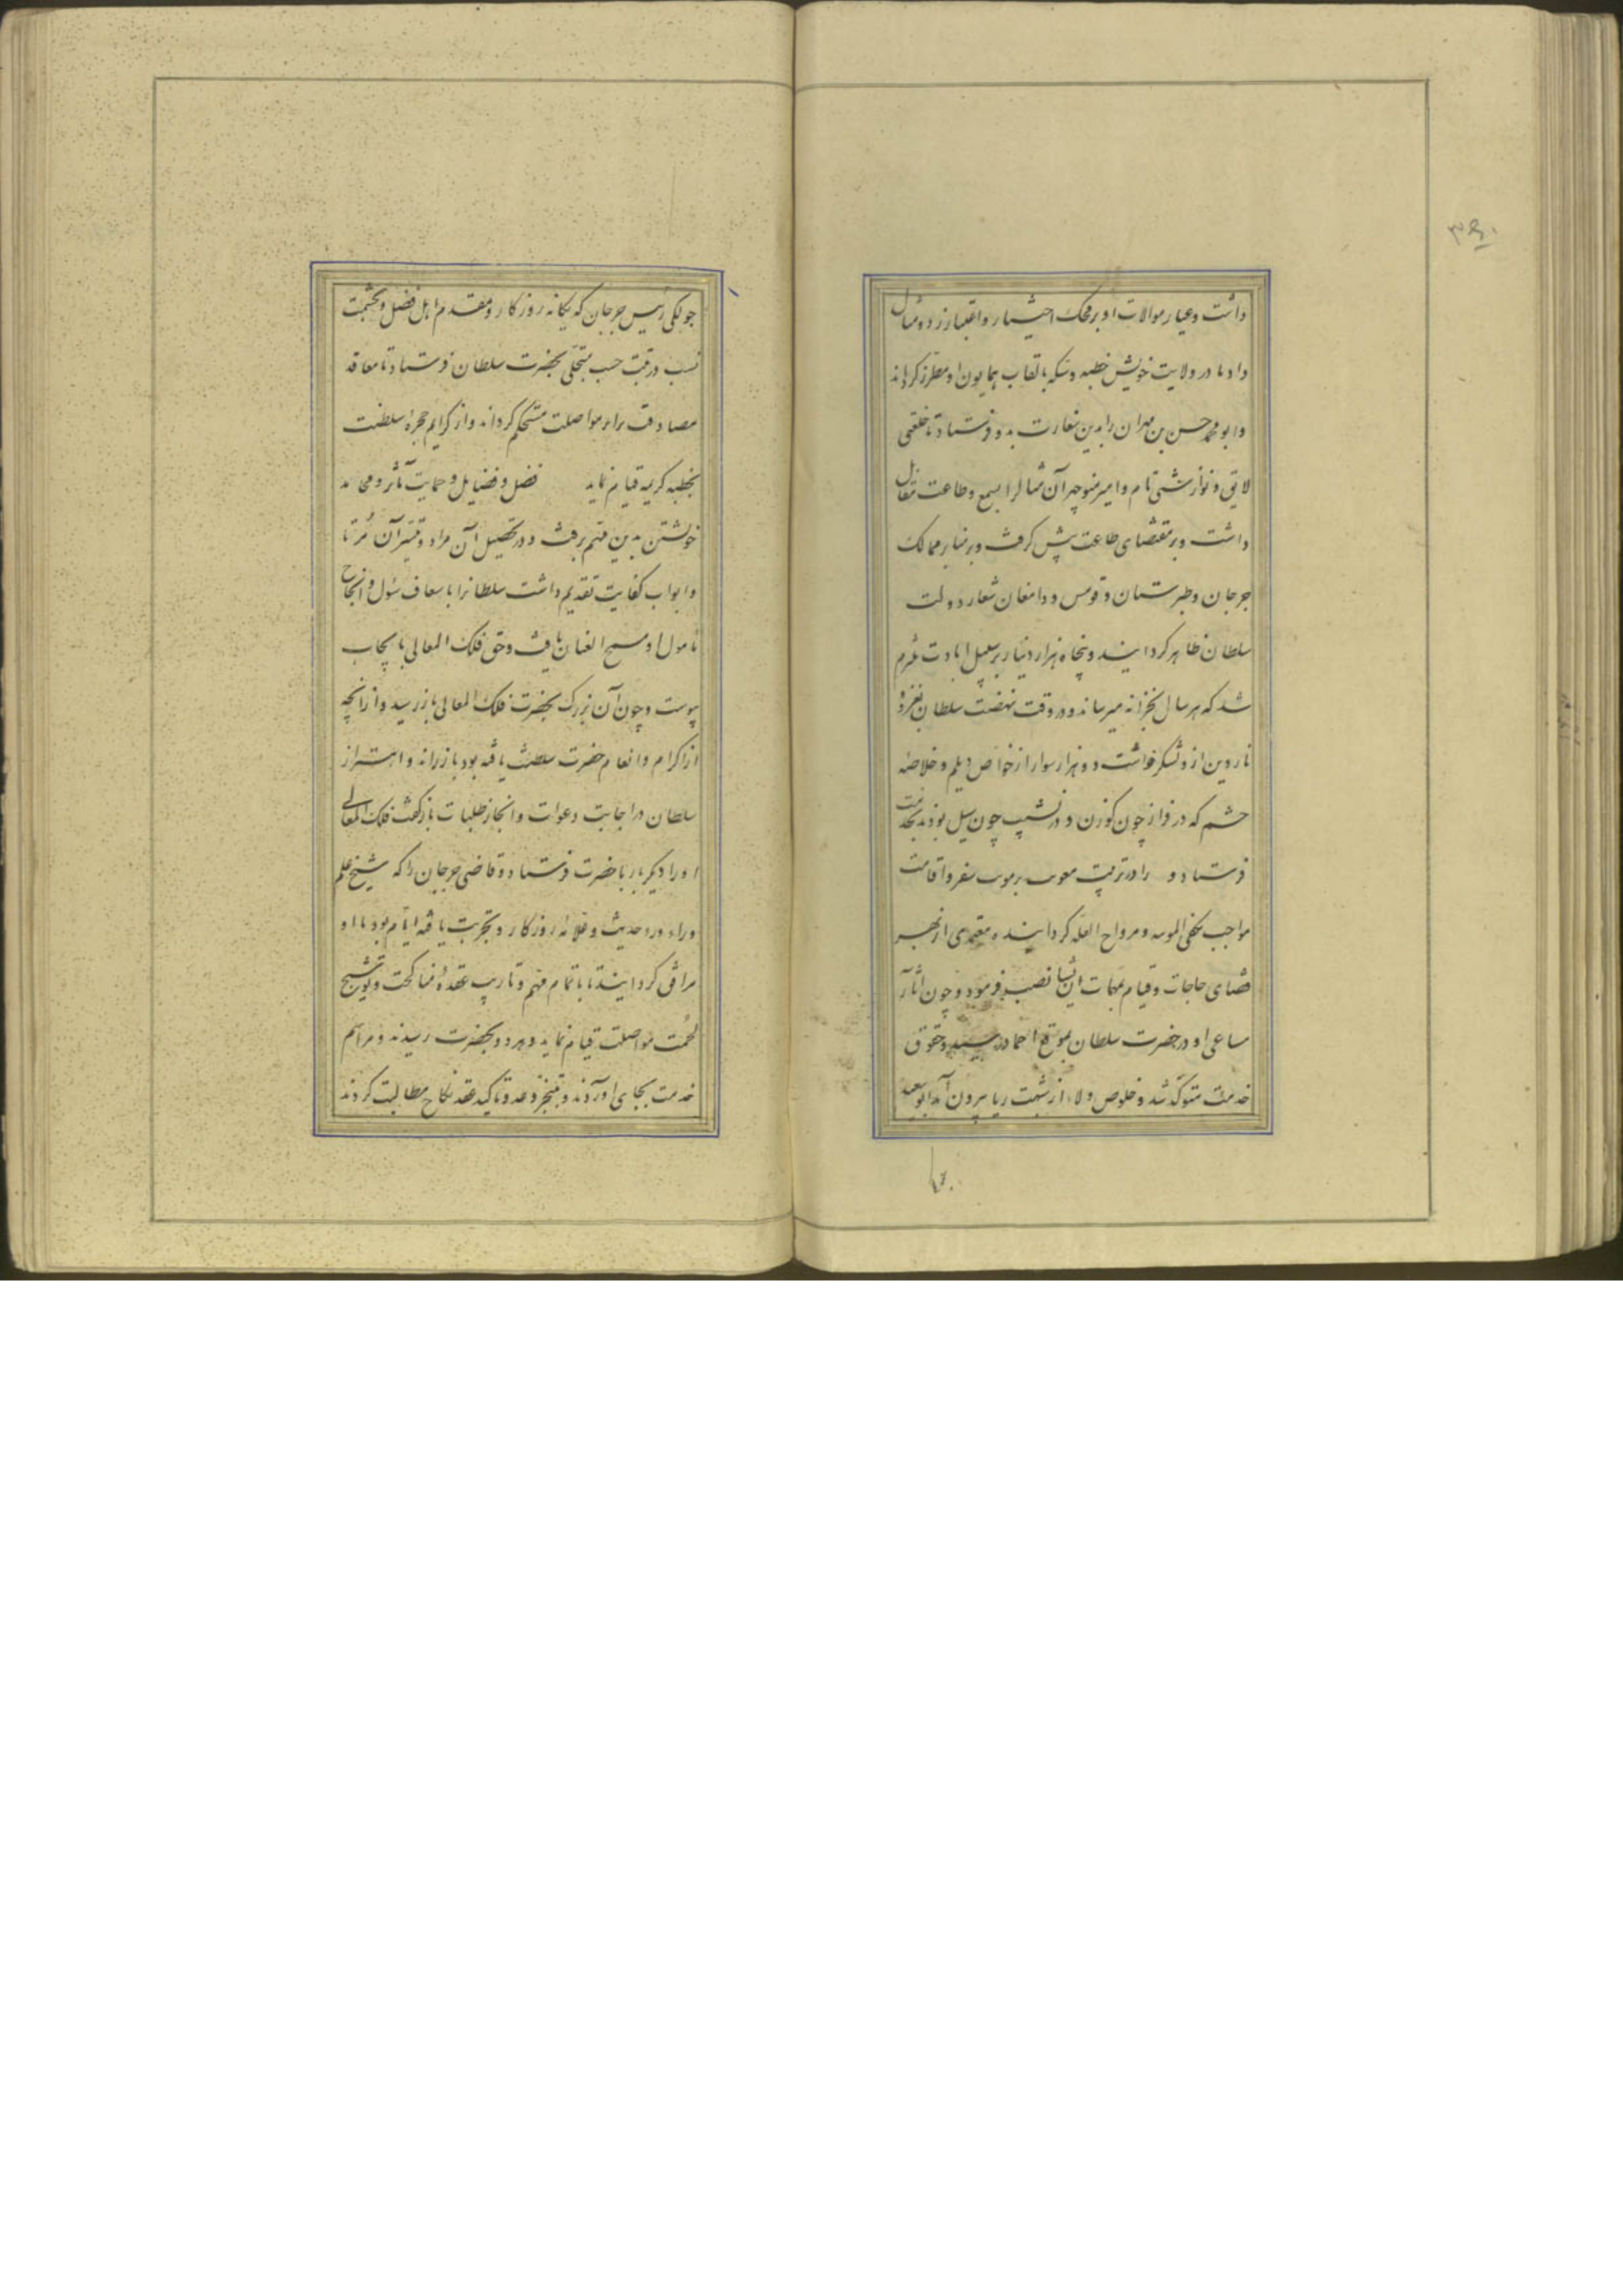 داشت و عیار موالات او بر محک اختیار و اعتبار زد و مثال
داد تا در ولایت خویش خطبه و سکه بالقاب همایون او مطرز کرداند
و ابو محمد حسن بن مهران را بدین سفارت بدو فرستاد تا خلعتی
لایق و نوازشی تام و امیر منوچهر آن مثال را بسمع و طاعت مقابل
داشت و بر مقتضای طاعت پیش کرفت و بر منابر ممالک
جرجان و طبرستان و قومس و دامغان شعار دولت
سلطان ظاهر کردانید و پنجاه هزار دینار بر سبیل اتاوت ملتزم
شد که هر سال بخزانه میرساند و در وقت نهضت سلطان بغزو
ناردین از و لشکر خواست دو هزار سوار از خواص دیلم و خلاصه
حشم که در فراز چون کوزن و در نشیب چون سیل بودند بخدمت
فرستاد و را در ترتیب سفر و اقامت
مواجب مکفی و مزاح العله کردانیده معتمدی از بهر
قضای حاجات و قیام بمهمات ایشان نصب فرمود و چون آثار
مساعی او در حضرت سلطان بموقع احماد رسید و حقوق
خدمت متوکد شد و خلوص ولاء از شبهت ریا بیرون آمد ابو سعید
جولکی رئیس جرجان که یکانه روزکار و مقدم اهل فضل و بحشمت
نسب و رقبت حسب متحلی بحضرت سلطان فرستاد تا معاقد
مصادقت را بر مواصلت مستحکم کرداند و از کرایم حجره سلطنت
بخطبه کریمه قیام نماید فضل و فضایل و حمایت مآثر و محامد
خویشتن بدین مهم برفت و در تحصیل آن مراد و تیسیر آن مرتاد
و ابواب کفایت تقدیم داشت سلطانرا باسعاف سئول و انجاح
مامول او سمیح العنان یافت و حق فلک المعالی بایجاب
پیوست و چون آن بزرک بحضرت فلک المعالی باز رسید و از انچه
از اکرام و انعام حضرت سلطنت یافته بود باز راند و اهتزاز
سلطان در اجابت دعوات و انجاز طلبات باز کفت فلک المعالی
او را دیکر بار با حضرت فرستاد و قاضی جرجان را که شیخ علم
و راء ورد حدیث و علامه روزکار و تجربت یافته ایام بود با او
مرافق کردانید تا باتمام مهم و تاریب عقده مناکحت و توشیج
لحمت مواصلت قیام نماید و هر دو بحضرت رسیدند و مراسم
خدمت بجای آوردند و بتنجز وعد و تاکید عقد نکاح مطالبت کردند